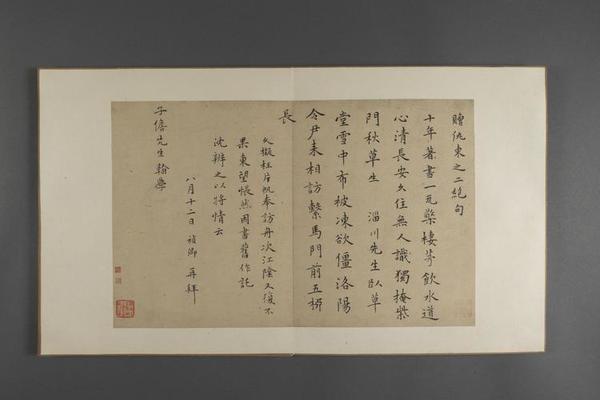 贈仇東之二絕句
十年著書一瓦檠棲芩飲水道
心清長安久住無人識獨掩柴
門秋草生 淄川先生臥草
堂雪中布被凍欲僵洛陽
令尹來相訪繫馬門前五柳
長
久擬枉片帆奉訪舟次江陰又復不
果東望悵然因書舊作託
沈辨之以將情云
八月十二日 禎卿 再拜
子儋先生翰學